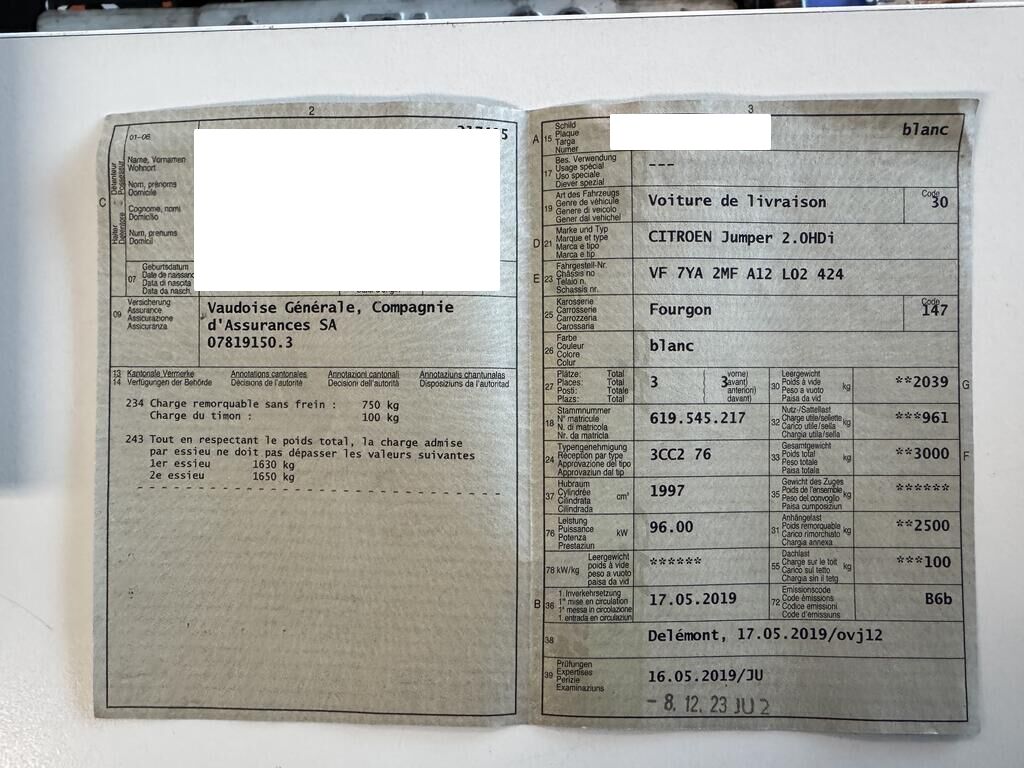 2
01-06
C
Détenteur Possessur
Halter Detentore
Name, Vornamen
Wohnort
Nom, prénoms
Domicile
Cognome, nomi
Domicilio
Num, prenums
Domicil
07
Geburtsdatum
Date de naissanc
Data di nascita
Data da nasch.
09
Versicherung
Assurance
Assicurazione
Assicuranza
Vaudoise Générale, Compagnie
d'Assurances SA
07819150.3
13 Kantonale Vermerke Annotations cantonales Annotazioni cantonali Annotaziuns chantunalas
14 Verfügungen der Behörde Décisions de l'autorité Decisioni dell'autorità Disposiziuns da l'autoritad
234 Charge remorquable sans frein : 750 kg
Charge du timon : 100 kg
243 Tout en respectant le poids total, la charge admise
par essieu ne doit pas dépasser les valeurs suivantes
1er essieu 1630 kg
2e essieu 1650 kg
3
A 15
Schild
Plaque
Targa
Numer
blanc
17
Bes. Verwendung
Usage spécial
Uso speciale
Diever spezial
---
19
Art des Fahrzeugs
Genre de véhicule
Genere di veicolo
Gener dal vehichel
Voiture de livraison
Code
30
D 21
Marke und Typ
Marque et type
Marca e tipo
Marca e tip
CITROEN Jumper 2.0HDi
E 23
Fahrgestell-Nr.
Châssis no
Telaio n.
Schassis nr.
VF 7YA 2MF A12 L02 424
25
Karosserie
Carrosserie
Carrozzeria
Carossaria
Fourgon
Code
147
26
Farbe
Couleur
Colore
Colur
blanc
27
Plätze: Total
Places: Total
Posti: Totale
Plazs: Total
3
( vorne)
( 3 avant)
( anteriori)
( davant)
30
Leergewicht
Poids à vide
Peso a vuoto
Paisa da vid
kg
**2039
G
18
Stammnummer
N° matricule
N. di matricola
Nr. da matricla
619.545.217
32
Nutz-/Sattellast
Charge utile/sellette
Carico utile/sella
Chargia utila/sella
kg
***961
24
Typengenehmigung
Réception par type
Approvazione del tipo
Approvaziun dal tip
3CC2 76
33
Gesamtgewicht
Poids total
Peso totale
Paisa totala
kg
**3000
F
37
Hubraum
Cylindrée
Cilindrata
Cilindrada
cm³
1997
35
Gewicht des Zuges
Poids de l'ensemble
Peso del convoglio
Paisa cumposiziun
kg
******
76
Leistung
Puissance
Potenza
Prestaziun
kW
96.00
31
Anhängelast
Poids remorquable
Carico rimorchiato
Chargia annexa
kg
**2500
78 kW/kg
Leergewicht
poids à vide
peso a vuoto
paisa da vid
******
55
Dachlast
Charge sur le toit
Carico sul tetto
Chargia sin il tetg
kg
***100
B 36
1. Inverkehrsetzung
1re mise en circulation
1a messa in circolazione
1. entrada en circulaziun
17.05.2019
72
Emissionscode
Code émissions
Codice emissioni
Code d'emissiuns
B6b
38
Delémont, 17.05.2019/ovj12
39
Prüfungen
Expertises
Perizie
Examinaziuns
16.05.2019/JU
- 8. 12. 23 JU 2